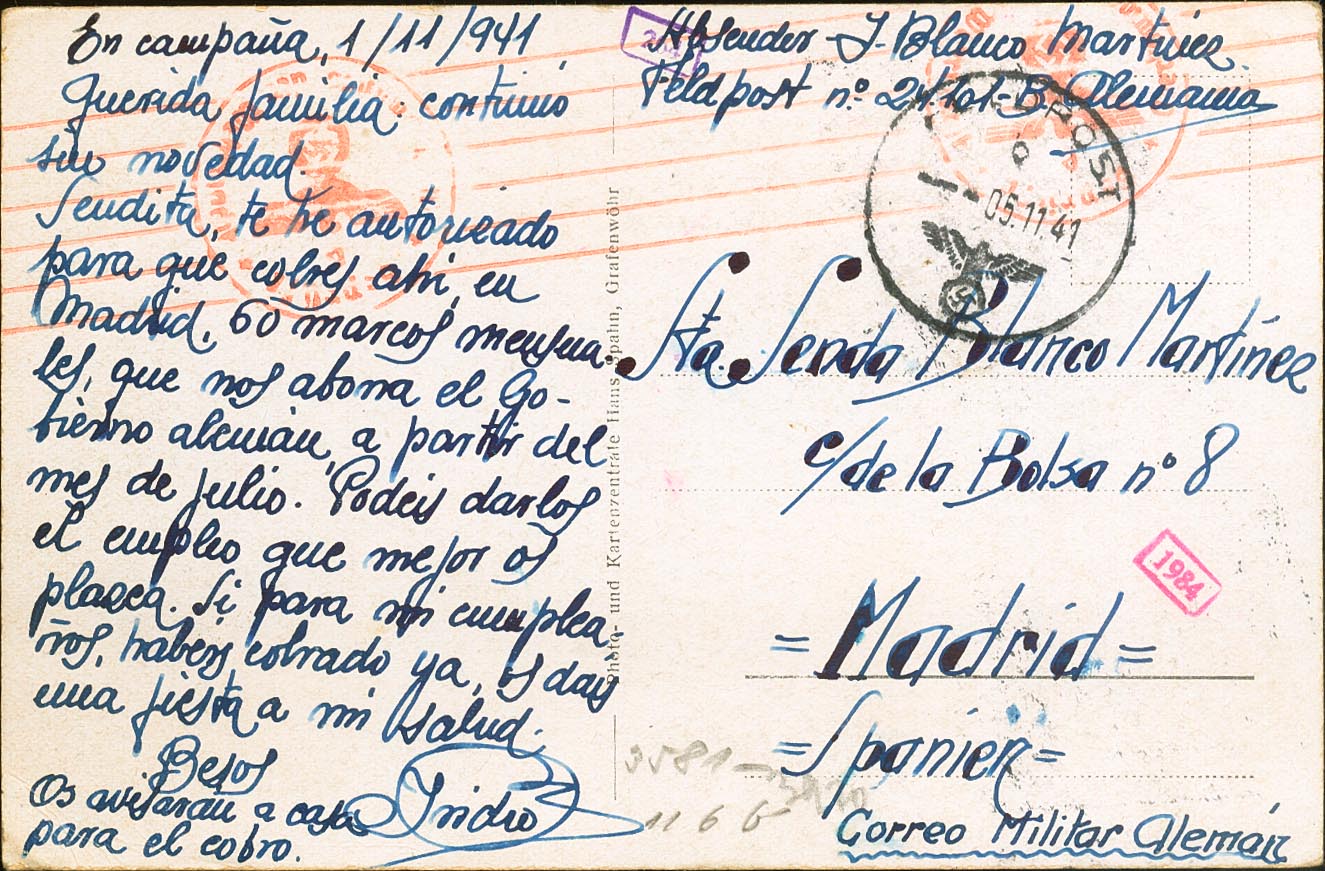 En campaña, 1/11/941
Querida familia: continúo
sin novedad.
Sendita, te he autorizado
para que cobres ahí, en
Madrid, 60 marcos mensua-
les, que nos abona el Go-
bierno alemán, a partir del
mes de julio. Podeis darlos
el empleo que mejor os
plazca. Si para mi cumplea
ños, habeis cobrado ya, os dais
una fiesta a mi salud.
Besos
Isidro
Os avisarán a casa
para el cobro.
Photo- und Kartenzentrale Hans Spahn, Grafenwöhr
Absender J. Blanco Martínez.
Feldpost nº Alemania
FELDPOST
05.11.41
Sta. Senda Blanco Martínez
c/ de la Bolsa nº 8
1984
=Madrid=
=Spanien=
Correo Militar Alemán
3581
11 6 6